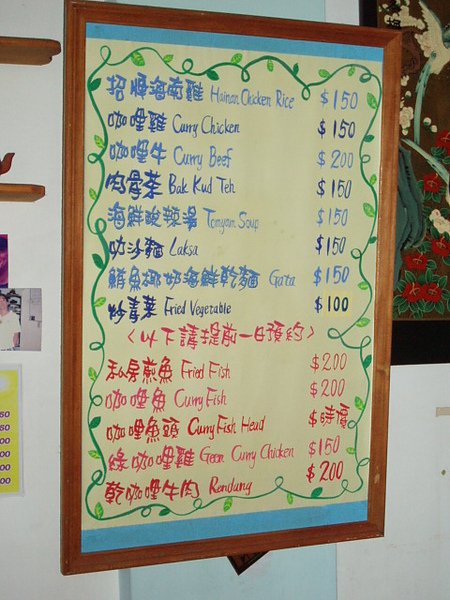 招牌海南雞 Hainan Chicken Rice $150
咖哩雞 Curry Chicken $150
咖哩牛 Curry Beef $200
肉骨茶 Bak Kud Teh $150
海鮮酸辣湯 Tomyam Soup $150
叻沙麵 Laksa $150
鱆魚椰奶海鮮乾麵 Gata $150
炒青菜 Fried Vegetable $100
<以下請提前一日預約>
私房煎魚 Fried Fish $200
咖哩魚 Curry Fish $200
咖哩魚頭 Curry Fish Head $時價
綠咖哩雞 Geen Curry Chicken $150
乾咖哩牛肉 Rendang $200